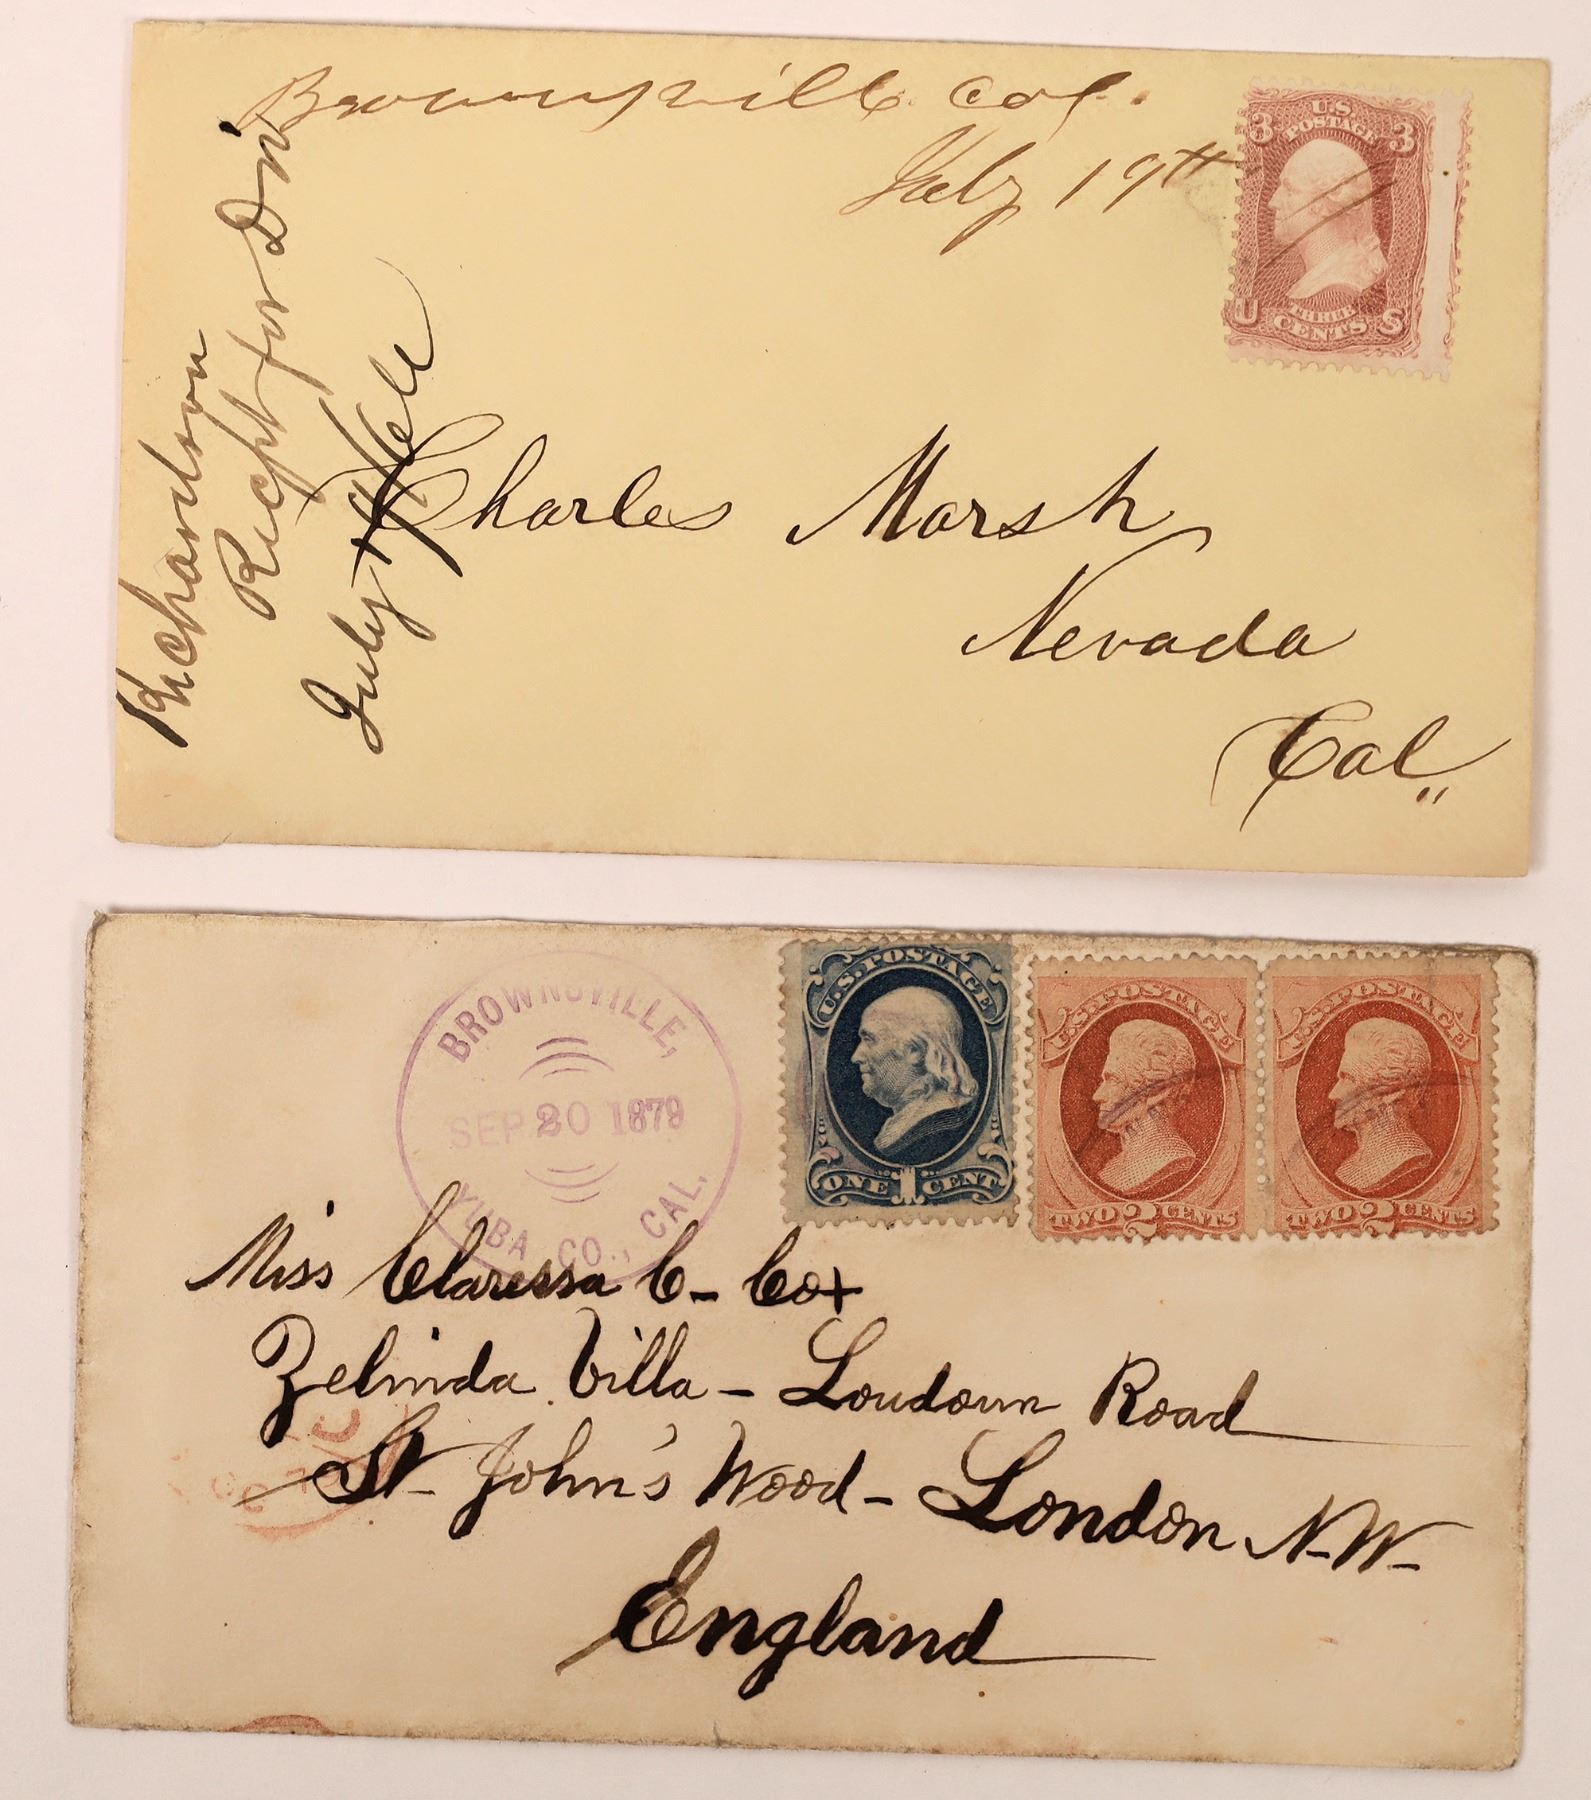 Brownsville Cal.
July 19th
U.S. POSTAGE
3 3
THREE CENTS
U S
Richardson
Recpt for Div
July
Charles Marsh
Nevada
Cal
BROWNSVILLE,
SEP 20 1879
YUBA CO., CAL.
U.S. POSTAGE
ONE 1 CENT
U.S. POSTAGE
TWO 2 CENTS
U.S. POSTAGE
TWO 2 CENTS
Miss Claressa C- Cox
Zelinda Villa - Loudoun Road
St- John's Wood - London N-W-
England